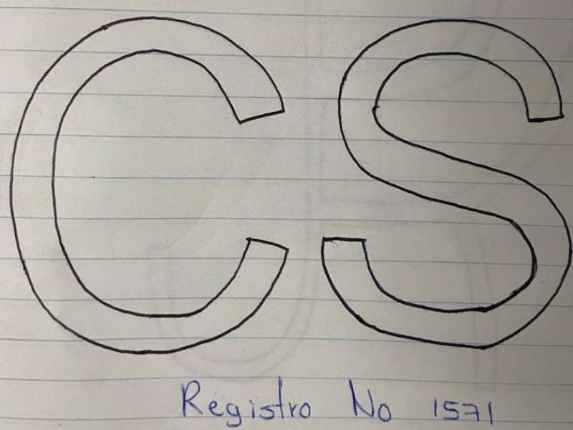 CS
Registro No 1571